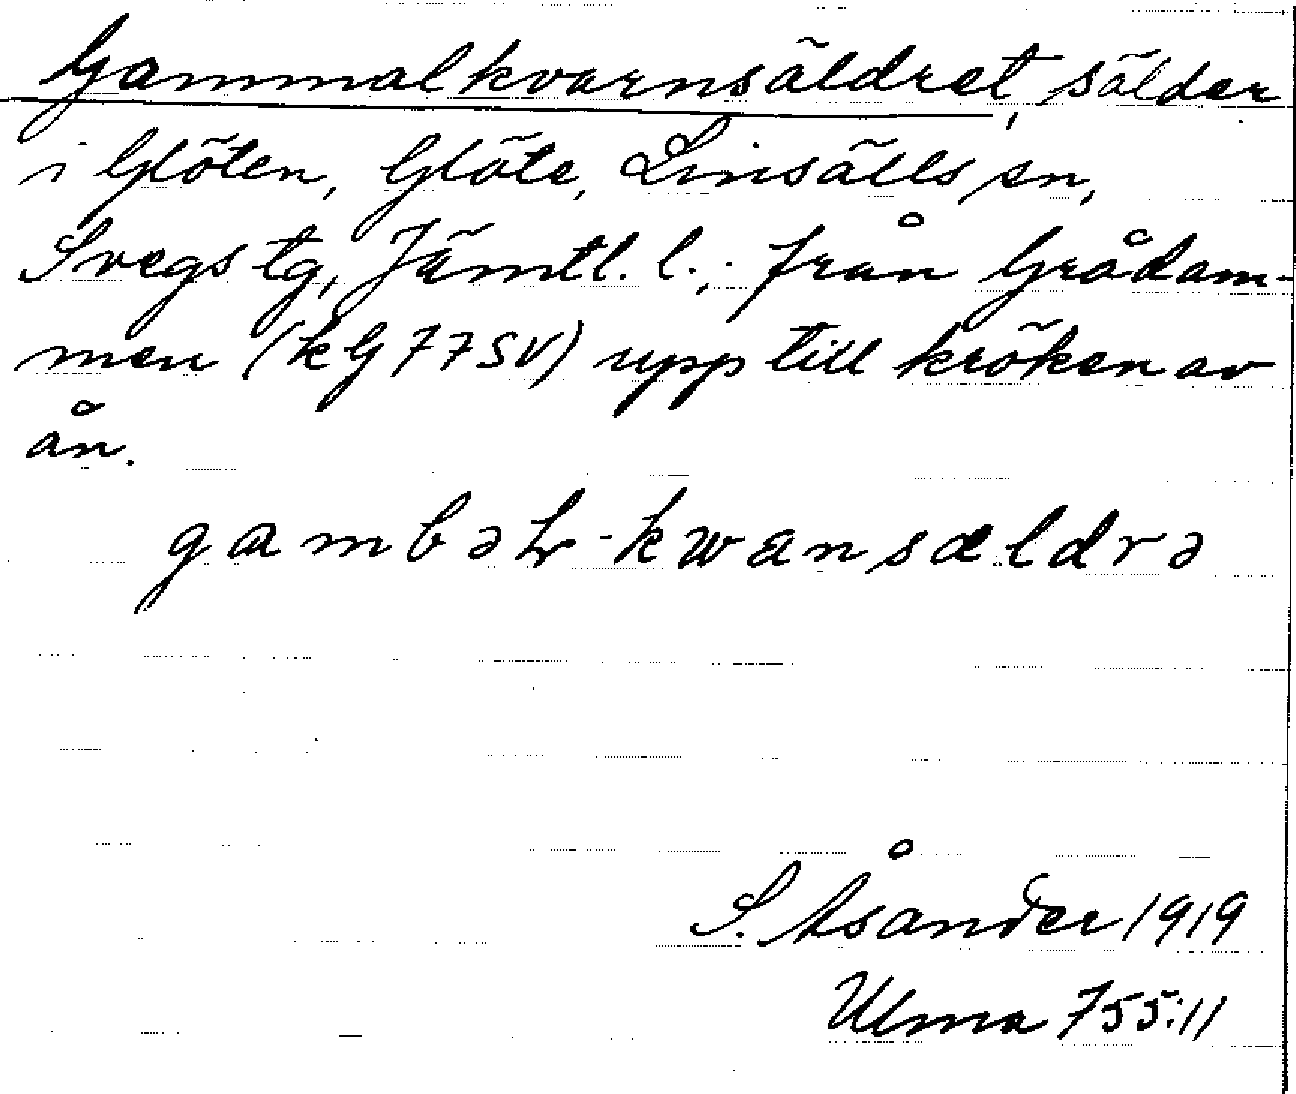 Gammalkvarnsäldret, sälder
i Glöten, Glöte, Linsälls sn,
Svegs tg, Jämtl. l., från Grådam-
men (kG 77SV) upp till kröken av
ån.
gambəɫ-kwansældrə
S. Åsander 1919
Ulma 755:11